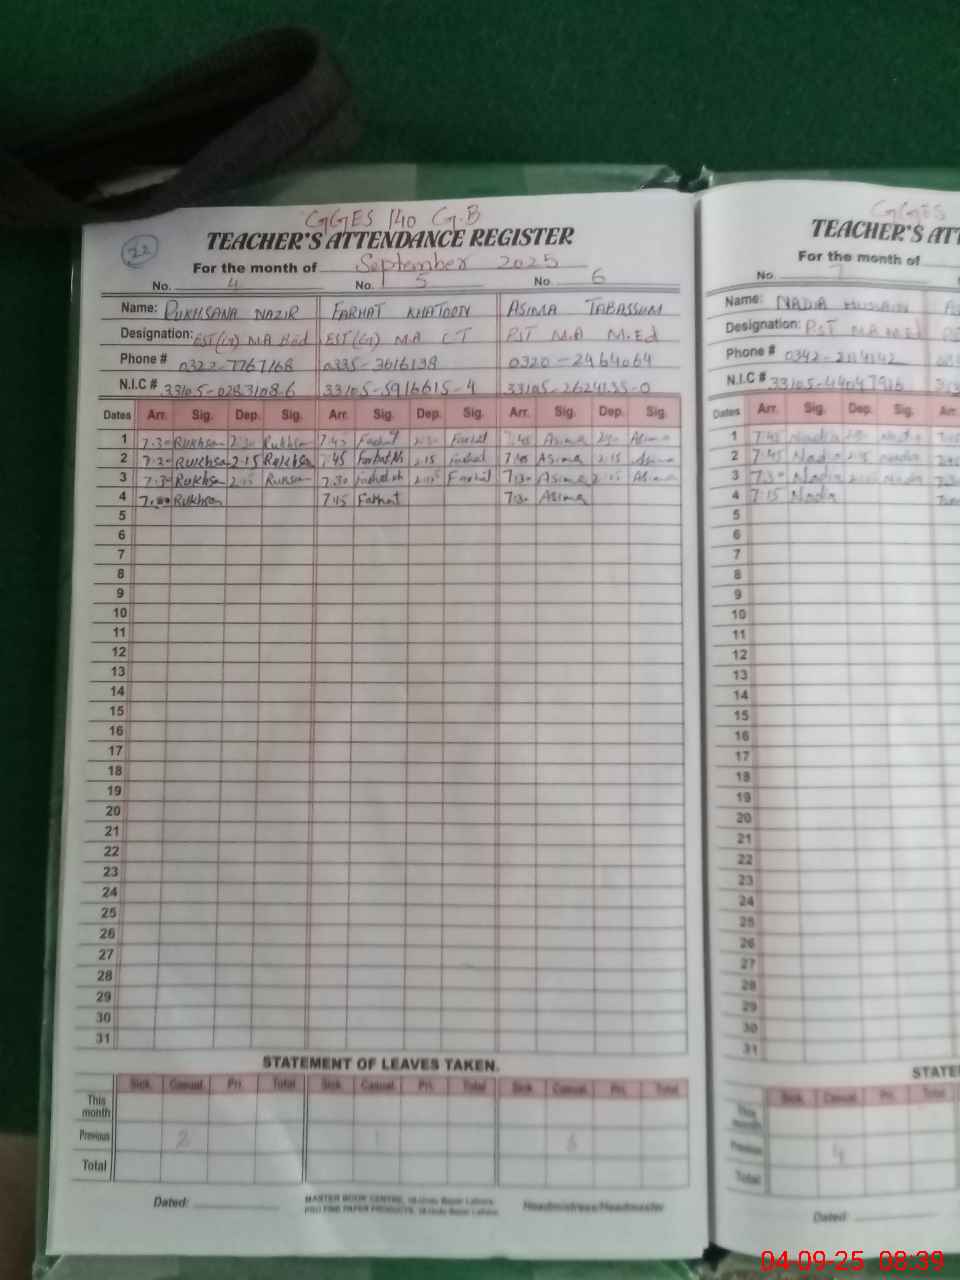 GGES 140 G.B
22
TEACHER'S ATTENDANCE REGISTER
For the month of September 2025
No. 4 No. 5 No. 6
Name: RUKHSANA NAZIR FARHAT KHATOON ASIMA TABASSUM
Designation: EST(G) M.A Bed EST(G) M.A CT PST M.A M.Ed
Phone # 0322-7767168 0335-3616138 0320-2464064
N.I.C # 33105-0283108-6 33105-5916615-4 33105-2624135-0
Dates Arr. Sig. Dep. Sig. Arr. Sig. Dep. Sig. Arr. Sig. Dep. Sig.
1 7.30 Rukhsa 2:30 Rukhsa 7.45 Farhat 2:30 Farhat 7.45 Asima 2:30 Asima
2 Rukhsa 2.15 Rukhsa 7.45 Farhat 2.15 Farhat 7.45 Asima 2.15 Asima
3 7.30 Rukhsa 2:15 Ruksan 7.30 Farhat 2:15 Farhat 7.30 Asima 2:15 Asima
4 Rukhsan 7.15 Farhat 7.30 Asima
5
6
7
8
9
10
11
12
13
14
15
16
17
18
19
20
21
22
23
24
25
26
27
28
29
30
31
STATEMENT OF LEAVES TAKEN.
Sick. Casual. Pri. Total Sick. Casual. Pri. Total Sick. Casual. Pri. Total
This month
Previous 2 1 6
Total
Dated: MASTER BOOK CENTRE, Headmistress/Headmaster
GGES
TEACHER'S ATT
For the month of
No 7
Name: NADIA HUSSAIN
Designation: PST M.A M.Ed
Phone # 0342-
N.I.C # 33105-
Dates Arr. Sig. Dep. Sig. Arr.
1 7.45 Nadia Nadia
2 7.45 Nadia 2.15 Nadia
3 7.30 Nadia Nadia
4 7.15 Nadia
5
6
7
8
9
10
11
12
13
14
15
16
17
18
19
20
21
22
23
24
25
26
27
28
29
30
31
STATE
Sick. Casual. Pri. Total
This month
Previous 4
Total
Dated:
04-09-25 08:39